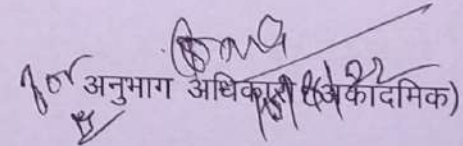 for अनुभाग अधिकारी (अकादमिक)